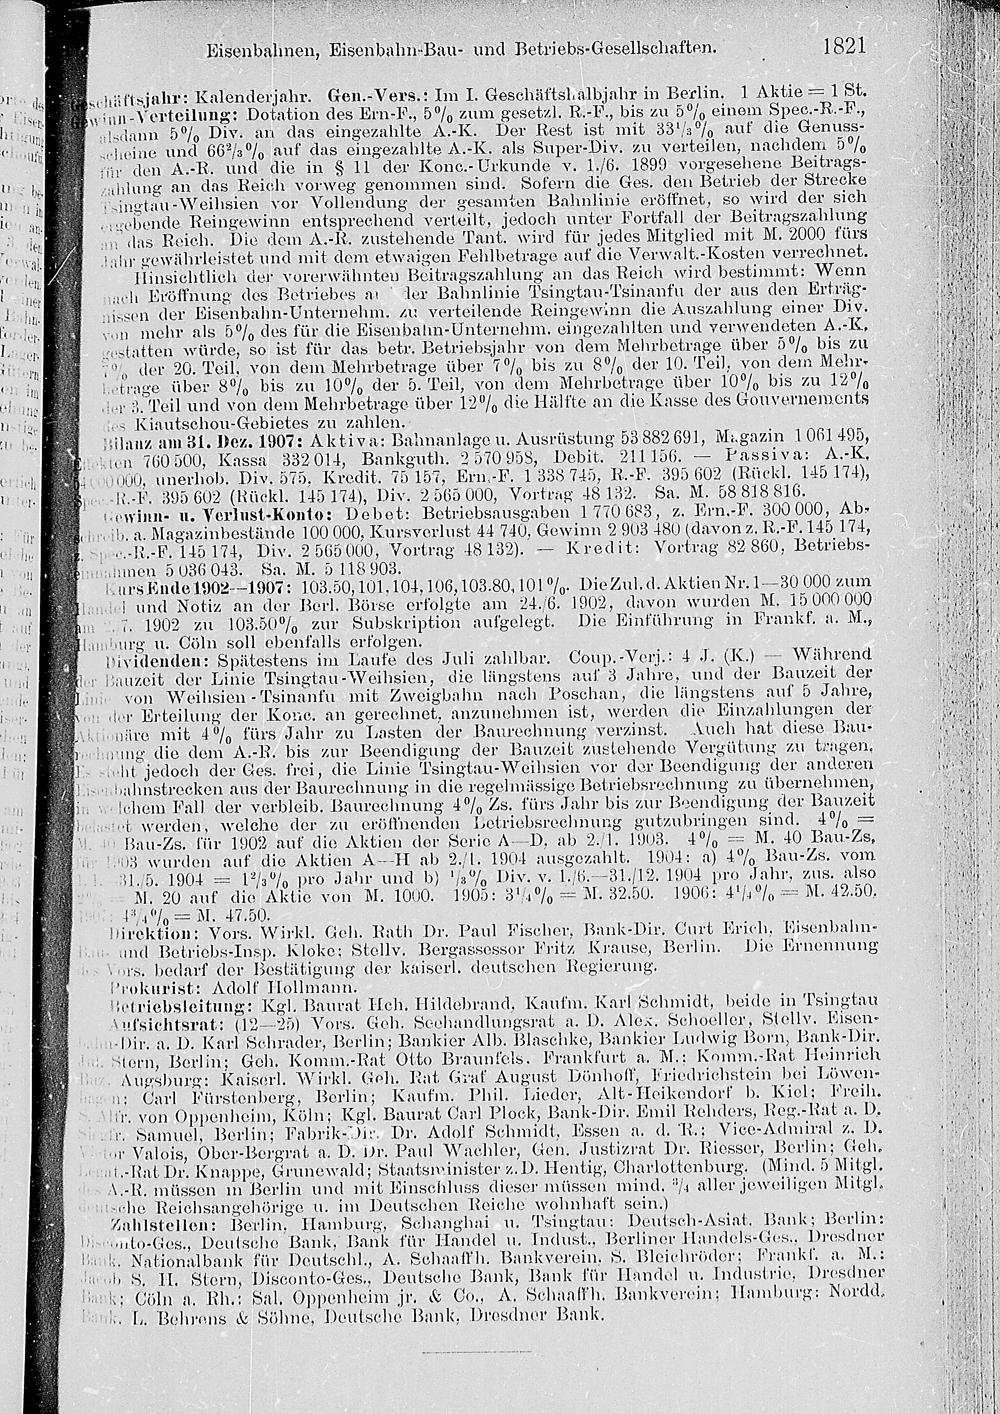 Eisenbahnen, Eisenbahn-Bau- und Betriebs-Gesellschaften. 1821
Geschäftsjahr: Kalenderjahr. Gen.-Vers.: Im I. Geschäftshalbjahr in Berlin. 1 Aktie = 1 St.
Gewinn-Verteilung: Dotation des Ern-F., 5% zum gesetzl. R.-F., bis zu 5% einem Spec.-R.-F.,
alsdann 5% Div. an das eingezahlte A.-K. Der Rest ist mit 33⅓% auf die Genuss-
scheine und 66⅔% auf das eingezahlte A.-K. als Super-Div. zu verteilen, nachdem 5%
für den A.-R. und die in § 11 der Konc.-Urkunde v. 1./6. 1899 vorgesehene Beitrags-
zahlung an das Reich vorweg genommen sind. Sofern die Ges. den Betrieb der Strecke
Tsingtau-Weihsien vor Vollendung der gesamten Bahnlinie eröffnet, so wird der sich
ergebende Reingewinn entsprechend verteilt, jedoch unter Fortfall der Beitragszahlung
an das Reich. Die dem A.-R. zustehende Tant. wird für jedes Mitglied mit M. 2000 fürs
Jahr gewährleistet und mit dem etwaigen Fehlbetrage auf die Verwalt.-Kosten verrechnet.
Hinsichtlich der vorerwähnten Beitragszahlung an das Reich wird bestimmt: Wenn
nach Eröffnung des Betriebes a der Bahnlinie Tsingtau-Tsinanfu der aus den Erträg-
nissen der Eisenbahn-Unternehm. zu verteilende Reingewinn die Auszahlung einer Div.
von mehr als 5% des für die Eisenbahn-Unternehm. eingezahlten und verwendeten A.-K.
gestatten würde, so ist für das betr. Betriebsjahr von dem Mehrbetrage über 5% bis zu
7% der 20. Teil, von dem Mehrbetrage über 7% bis zu 8% der 10. Teil, von dem Mehr-
betrage über 8% bis zu 10% der 5. Teil, von dem Mehrbetrage über 10% bis zu 12%
der 3. Teil und von dem Mehrbetrage über 12% die Hälfte an die Kasse des Gouvernements
des Kiautschou-Gebietes zu zahlen.
Bilanz am 31. Dez. 1907: Aktiva: Bahnanlage u. Ausrüstung 53 882 691, Magazin 1 061 495,
Effekten 760 500, Kassa 332 014, Bankguth. 2 570 958, Debit. 211 156. — Passiva: A.-K.
54 000 000, unerhob. Div. 575, Kredit. 75 157, Ern.-F. 1 338 745, R.-F. 395 602 (Rückl. 145 174),
Spec.-R.-F. 395 602 (Rückl. 145 174), Div. 2 565 000, Vortrag 48 132. Sa. M. 58 818 816.
Gewinn- u. Verlust-Konto: Debet: Betriebsausgaben 1 770 683, z. Ern.-F. 300 000, Ab-
schreib. a. Magazinbestände 100 000, Kursverlust 44 740, Gewinn 2 903 480 (davon z. R.-F. 145 174,
z. Spec.-R.-F. 145 174, Div. 2 565 000, Vortrag 48 132). — Kredit: Vortrag 82 860, Betriebs-
einnahmen 5 036 043. Sa. M. 5 118 903.
Kurs Ende 1902—1907: 103.50, 101, 104, 106, 103.80, 101%. Die Zul. d. Aktien Nr. 1—30 000 zum
Handel und Notiz an der Berl. Börse erfolgte am 24./6. 1902, davon wurden M. 15 000 000
am 7. 1902 zu 103.50% zur Subskription aufgelegt. Die Einführung in Frankf. a. M.,
Hamburg u. Cöln soll ebenfalls erfolgen.
Dividenden: Spätestens im Laufe des Juli zahlbar. Coup.-Verj.: 4 J. (K.) — Während
der Bauzeit der Linie Tsingtau-Weihsien, die längstens auf 3 Jahre, und der Bauzeit der
Linie von Weihsien-Tsinanfu mit Zweigbahn nach Poschan, die längstens auf 5 Jahre,
von der Erteilung der Konc. an gerechnet, anzunehmen ist, werden die Einzahlungen der
Aktionäre mit 4% fürs Jahr zu Lasten der Baurechnung verzinst. Auch hat diese Bau-
rechnung die dem A.-R. bis zur Beendigung der Bauzeit zustehende Vergütung zu tragen.
Es steht jedoch der Ges. frei, die Linie Tsingtau-Weihsien vor der Beendigung der anderen
Eisenbahnstrecken aus der Baurechnung in die regelmässige Betriebsrechnung zu übernehmen,
in welchem Fall der verbleib. Baurechnung 4% Zs. fürs Jahr bis zur Beendigung der Bauzeit
belastet werden, welche der zu eröffnenden Betriebsrechnung gutzubringen sind. 4% =
M. 40 Bau-Zs. für 1902 auf die Aktien der Serie A—D, ab 2./1. 1903. 4% = M. 40 Bau-Zs.
für 1903 wurden auf die Aktien A—H ab 2./1. 1904 ausgezahlt. 1904: a) 4% Bau-Zs. vom
1. 1. 31./5. 1904 = 1⅔% pro Jahr und b) ⅓% Div. v. 1./6.—31./12. 1904 pro Jahr, zus. also
M. 20 auf die Aktie von M. 1000. 1905: 3¼% = M. 32.50. 1906: 4¼% = M. 42.50.
1907: 4¾% = M. 47.50.
Direktion: Vors. Wirkl. Geh. Rath Dr. Paul Fischer, Bank-Dir. Curt Erich, Eisenbahn-
Bau- und Betriebs-Insp. Kloke; Stellv. Bergassessor Fritz Krause, Berlin. Die Ernennung
des Vors. bedarf der Bestätigung der kaiserl. deutschen Regierung.
Prokurist: Adolf Hollmann.
Betriebsleitung: Kgl. Baurat Hch. Hildebrand, Kaufm. Karl Schmidt, beide in Tsingtau
Aufsichtsrat: (12—25) Vors. Geh. Seehandlungsrat a. D. Alex. Schoeller, Stellv. Eisen-
bahn-Dir. a. D. Karl Schrader, Berlin; Bankier Alb. Blaschke, Bankier Ludwig Born, Bank-Dir.
Jul. Stern, Berlin; Geh. Komm.-Rat Otto Braunfels, Frankfurt a. M.; Komm.-Rat Heinrich
Buz, Augsburg; Kaiserl. Wirkl. Geh. Rat Graf August Dönhoff, Friedrichstein bei Löwen-
hagen; Carl Fürstenberg, Berlin; Kaufm. Phil. Lieder, Alt-Heikendorf b. Kiel; Freih.
S. Alfr. von Oppenheim, Köln; Kgl. Baurat Carl Plock, Bank-Dir. Emil Rehders, Reg.-Rat a. D.
Samuel, Berlin; Fabrik-Dir. Dr. Adolf Schmidt, Essen a. d. R.; Vice-Admiral z. D.
Victor Valois, Ober-Bergrat a. D. Dr. Paul Wachler, Gen. Justizrat Dr. Riesser, Berlin; Geh.
Legat.-Rat Dr. Knappe, Grunewald; Staatsminister z. D. Hentig, Charlottenburg. (Mind. 5 Mitgl.
des A.-R. müssen in Berlin und mit Einschluss dieser müssen mind. ¾ aller jeweiligen Mitgl.
deutsche Reichsangehörige u. im Deutschen Reiche wohnhaft sein.)
Zahlstellen: Berlin, Hamburg, Schanghai u. Tsingtau: Deutsch-Asiat. Bank; Berlin:
Disconto-Ges., Deutsche Bank, Bank für Handel u. Indust., Berliner Handels-Ges., Dresdner
Bank, Nationalbank für Deutschl., A. Schaaffh. Bankverein, S. Bleichröder; Frankf. a. M.:
Jacob S. H. Stern, Disconto-Ges., Deutsche Bank, Bank für Handel u. Industrie, Dresdner
Bank; Cöln a. Rh.: Sal. Oppenheim jr. & Co., A. Schaaffh. Bankverein; Hamburg: Nordd.
Bank, L. Behrens & Söhne, Deutsche Bank, Dresdner Bank.